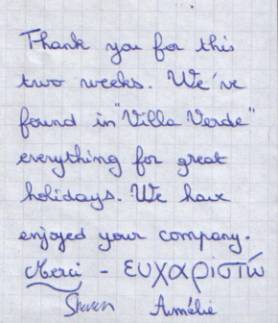 Thank you for this
two weeks. We've
found in "Villa Verde"
everything for great
holidays. We have
enjoyed your company.
Merci - ευχαριστώ
Steven Aumélie